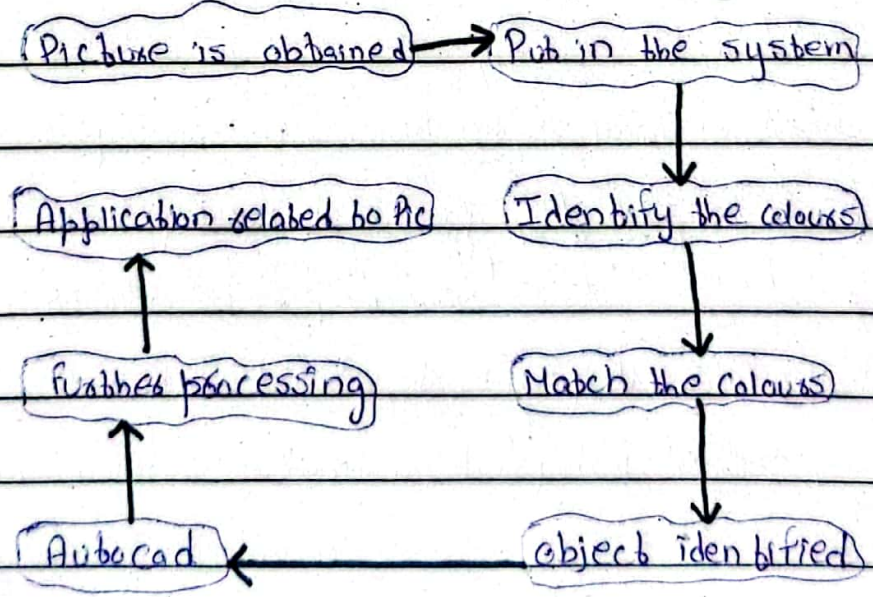 Picture is obtained
Put in the system
Identify the colours
Match the colours
object identified
Autocad
further processing
Application related to Pic